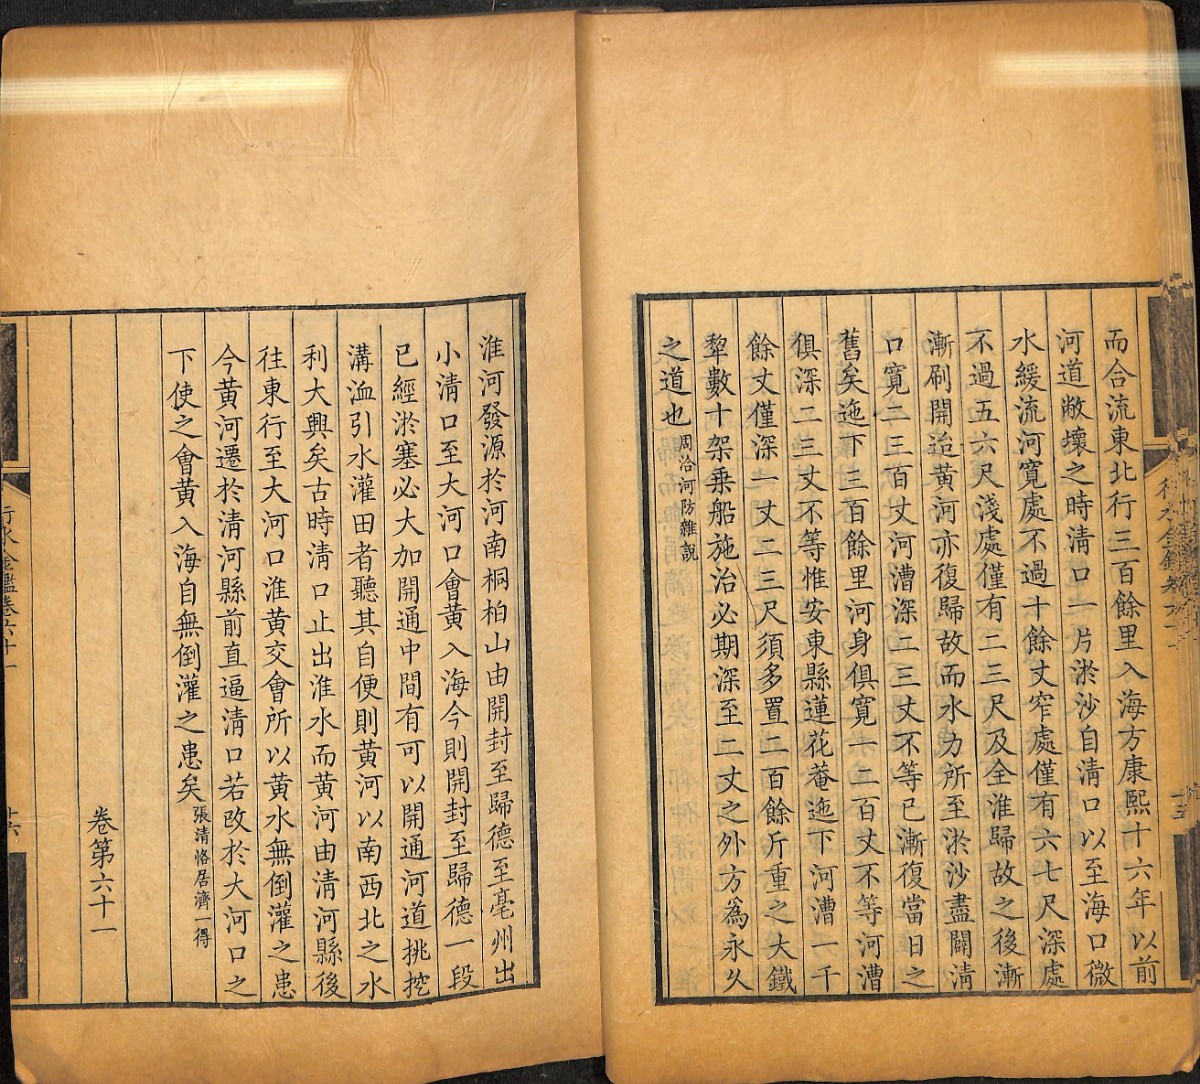 而合流東北行三百餘里入海方康熙十六年以前
河道敝壞之時淸口一片淤沙自淸口以至海口微
水緩流河寬處不過十餘丈窄處僅有六七尺深處
不過五六尺淺處僅有二三尺及全淮歸故之後漸
漸刷開迨黃河亦復歸故而水力所至淤沙盡闢淸
口寬二三百丈河漕深二三丈不等已漸復當日之
舊矣迤下三百餘里河身俱寬一二百丈不等河漕
俱深二三丈不等惟安東縣蓮花菴迤下河漕一千
餘丈僅深一丈二三尺須多置二百餘斤重之大鐵
犂數十架乗船施治必期深至二丈之外方爲永久
之道也周洽河防雜說
淮河發源於河南桐柏山由開封至歸德至亳州出
小淸口至大河口會黃入海今則開封至歸德一段
已經淤塞必大加開通中間有可以開通河道挑挖
溝洫引水灌田者聽其自便則黃河以南西北之水
利大興矣古時淸口止出淮水而黃河由淸河縣後
往東行至大河口淮黃交會所以黃水無倒灌之患
今黃河遷於淸河縣前直逼淸口若改於大河口之
下使之會黃入海自無倒灌之患矣張清恪居濟一得
卷第六十一
行水金鑑卷六十一
十六